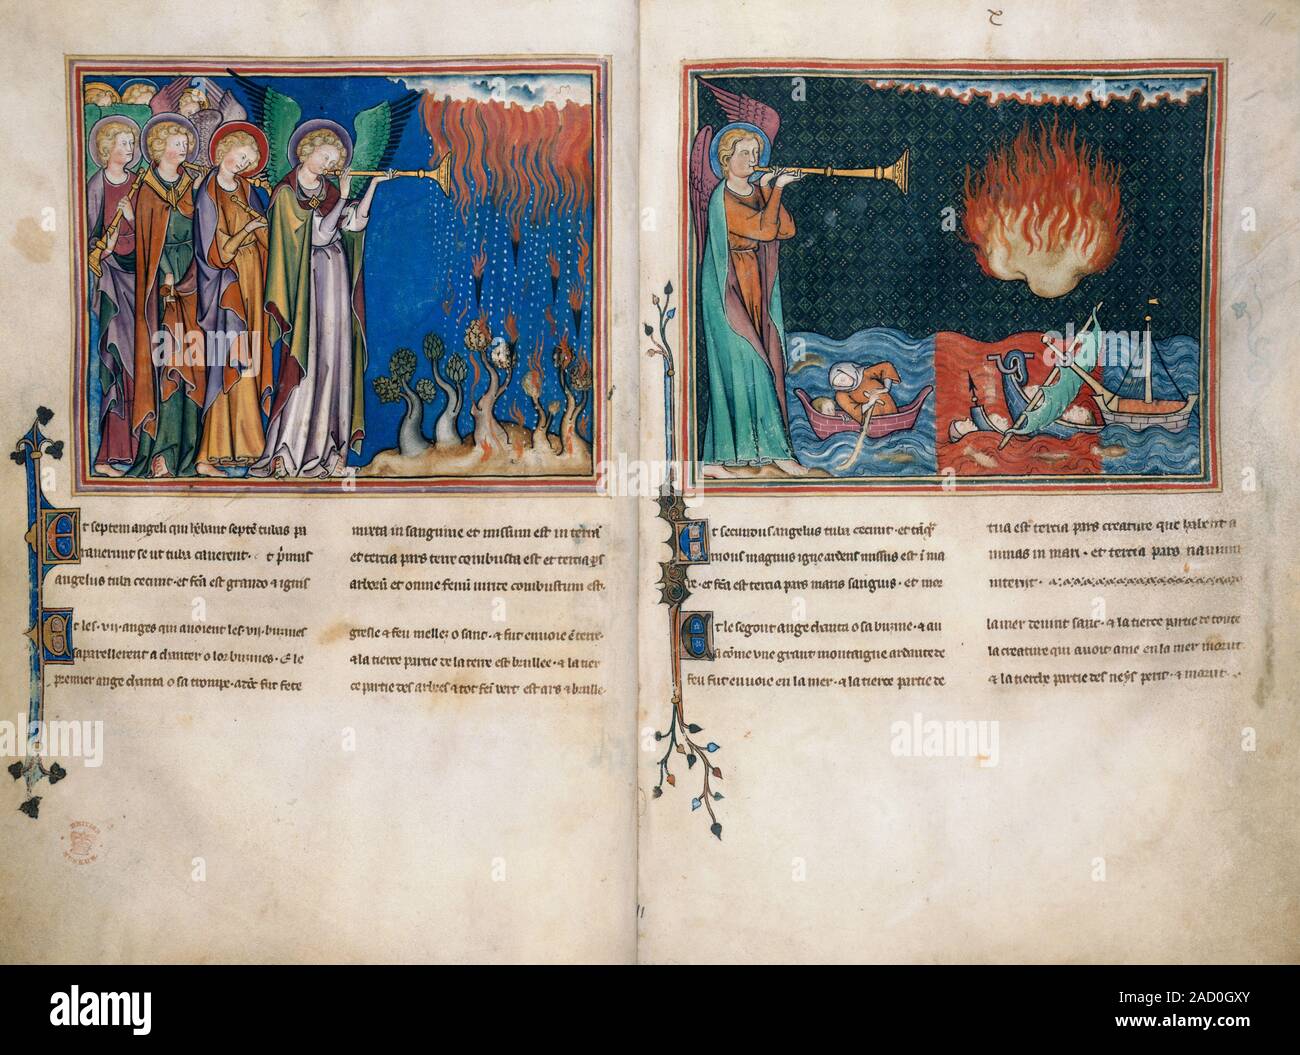 Et septem angeli qui hebant septe tubas pa
raverunt se ut tuba canerent · Et pimus
angelus tuba cecinit · et fca est grando & ignis
mixta in sanguine et missum est in terra
et tercia pars terre combusta est et tercia ps
arborum et omne fenum viride combustum est ·
Et les · vij · anges qui avoient les · vij · buisines
saparellerent a chanter o lor buzines · & le
premier ange chanta o sa trompe · & fut fete
gresle & feu melle o sanc · & fut envoie en terre ·
& la tierce partie de la terre est brullee · & la tier
ce partie des arbres & tot fein vert est ars & brulle ·
Et secundus angelus tuba cecinit · et tanq
mons magnus igne ardens missus est in ma
re · et fca est tercia pars maris sanguis · et mor
tua est tercia pars creature que habent a
nimas in mari · et tercia pars navium
interiit ·
Et le segont ange chanta o sa buzine · & au
si come une grant montaigne ardante de
feu fut envoie en la mer · & la tierce partie de
la mer devint sanc · & la tierce partie de toute
la creature qui avoit ame en la mer morut
& la tierche partie des neys perit · & morut ·
BRITISH
MUSEUM
11
alamy
Image ID: 2AD0GXY
www.alamy.com